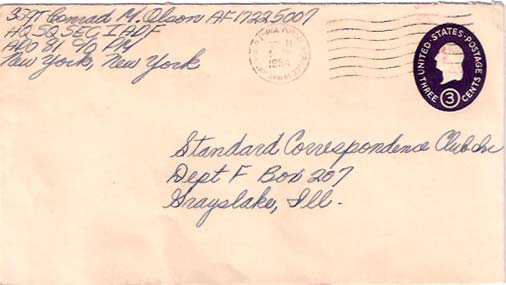 S/SGT Conrad M. Olson AF17225007
HQ SQ SEC IADF
APO 81 c/o PM
New York, New York
1954
UNITED STATES · POSTAGE
THREE 3 CENTS
Standard Correspondence Club Inc
Dept F Box 207
Grayslake, Ill.